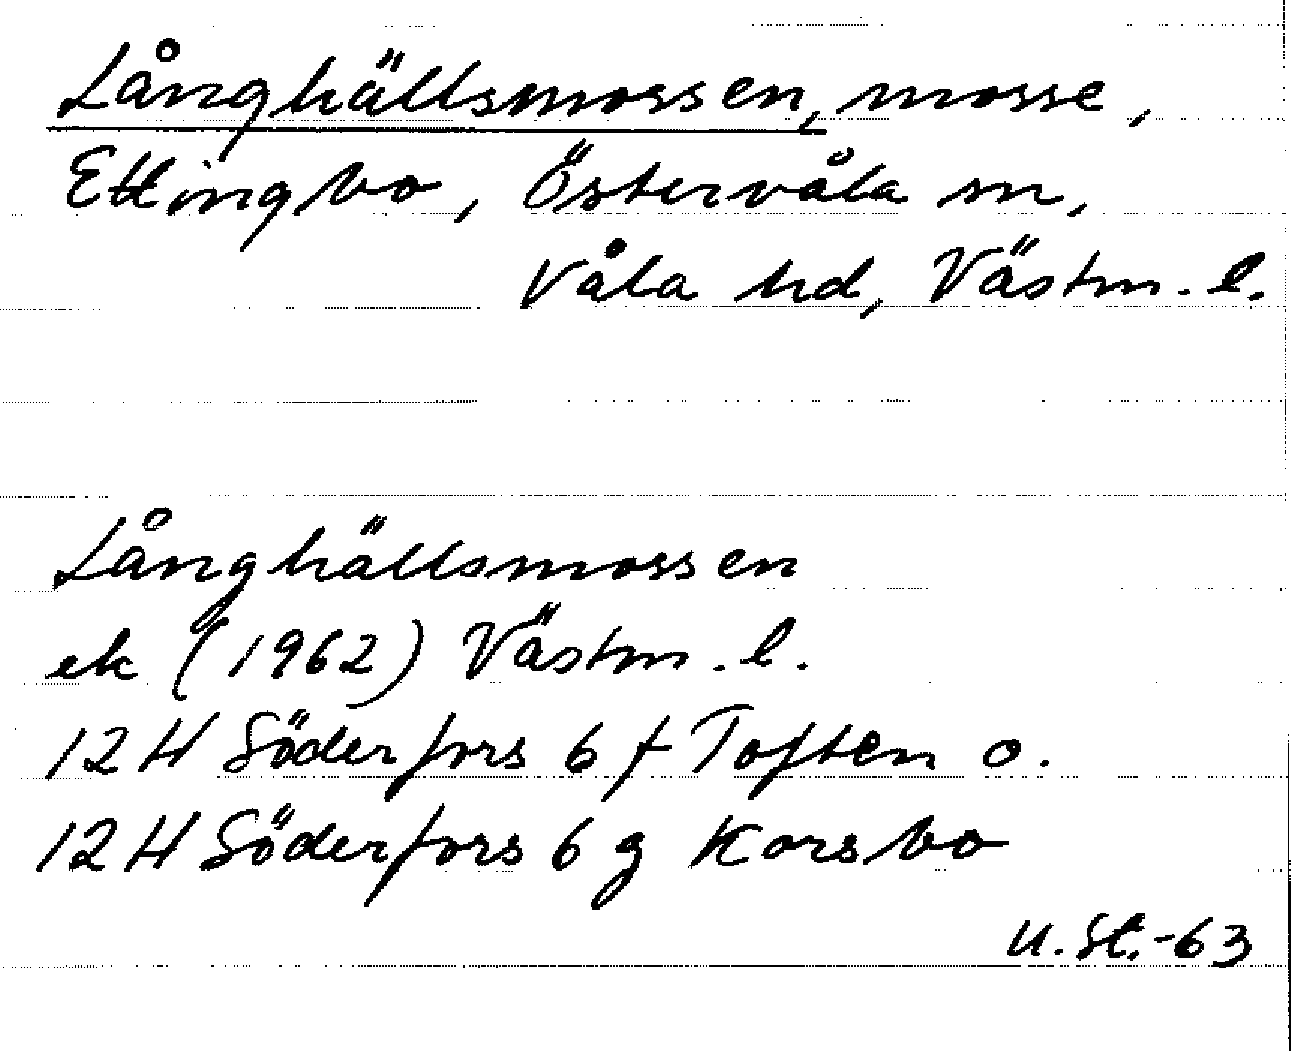 Långhällsmossen, mosse,
Ettingbo, Östervåla sn,
Våla hd, Västm. l.
Långhällsmossen
ek (1962) Västm. l.
12 H Söderfors 6 f Toften o.
12 H Söderfors 6 g Korsbo
U. St. -63